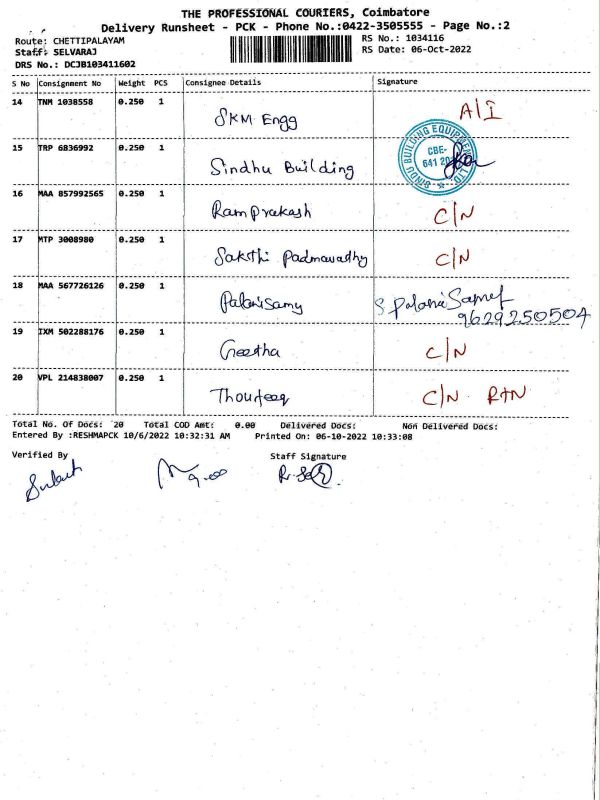 THE PROFESSIONAL COURIERS, Coimbatore
Delivery Runsheet - PCK - Phone No.:0422-3505555 - Page No.:2
Route: CHETTIPALAYAM RS No.: 1034116
Staff: SELVARAJ RS Date: 06-Oct-2022
DRS No.: DCJB103411602
S No Consignment No Weight PCS Consignee Details Signature
14 TNM 1038558 0.250 1 SKM Engg A/I
15 TRP 6836992 0.250 1 Sindhu Building
SINDU BUILDING EQUIPMENT LTD.
CBE-
641 20
16 MAA 857992565 0.250 1 Ram prakash C/N
17 MTP 3008980 0.250 1 Sakthi Padmavathy C/N
18 MAA 567726126 0.250 1 Palanisamy S. Palani Samy
9629250504
19 IXM 502288176 0.250 1 Geetha C/N
20 VPL 214838007 0.250 1 Thoufeeq C/N RTN
Total No. Of Docs: 20 Total COD Amt: 0.00 Delivered Docs: Non Delivered Docs:
Entered By :RESHMAPCK 10/6/2022 10:32:31 AM Printed On: 06-10-2022 10:33:08
Verified By Staff Signature
9.00